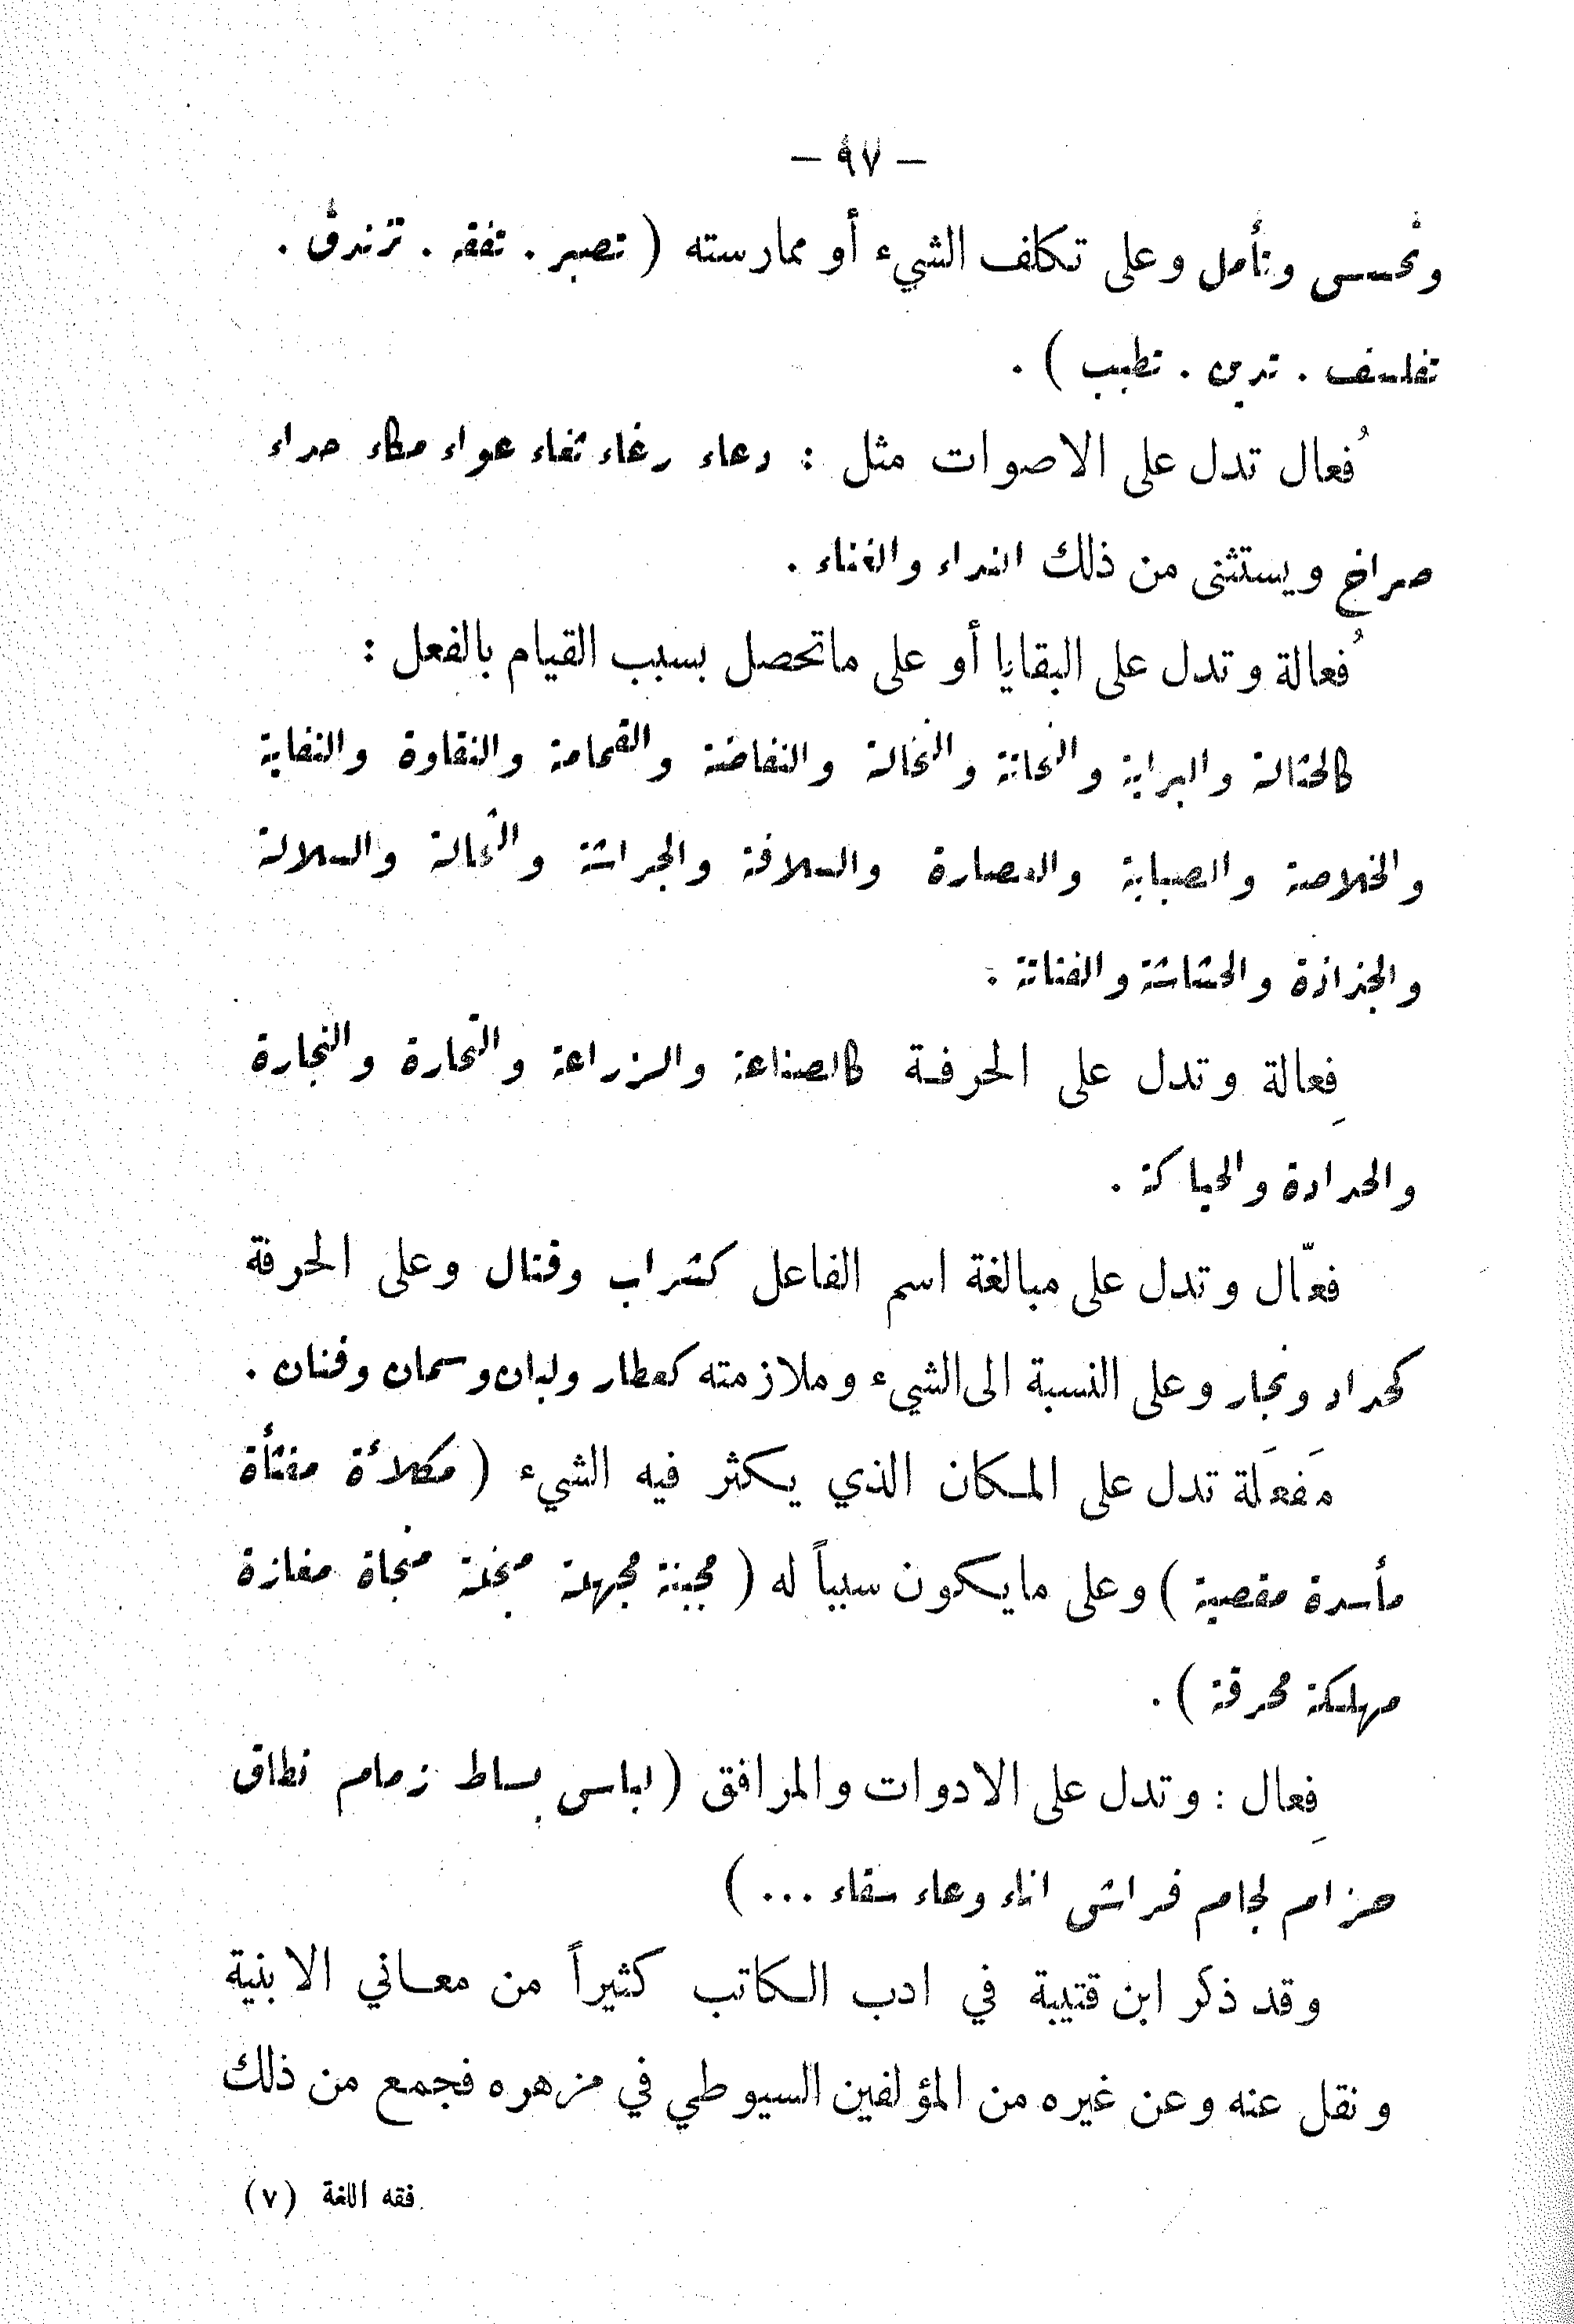 — ٩٧ —
وتحسس وتأمل وعلى تكلف الشيء أو ممارسته ( تصبر . تفقه . تزندق .
تفلسف . تدين . تطبب ) .
فُعال تدل على الاصوات مثل : دعاء رغاء ثغاء عواء مكاء حداء
صراخ ويستثنى من ذلك النداء والغناء .
فُعالة وتدل على البقايا أو على ماتحصل بسبب القيام بالفعل :
كالحثالة والبراية والنحاتة والنخالة والنفاضة والقمامة والنقاوة والنفاية
والخلاصة والصبابة والعصارة والسلافة والجراشة والثمالة والسلالة
والجذاذة والحشاشة والفتاتة .
فِعالة وتدل على الحرفة كالصناعة والزراعة والتجارة والنجارة
والحدادة والحياكة .
فعّال وتدل على مبالغة اسم الفاعل كشراب وقتال وعلى الحرفة
كحداد ونجار وعلى النسبة الى الشيء وملازمته كعطار ولبان وسمان وفنان .
مَفعَلة تدل على المكان الذي يكثر فيه الشيء ( مكلأة مقثأة
مأسدة مقصبة ) وعلى مايكون سبباً له ( مجبنة مجهلة مبخلة منجاة مفازة
مهلكة محرقة ) .
فِعال : وتدل على الادوات والمرافق ( لباس بساط زمام نطاق
حزام لجام فراش اناء وعاء سقاء ... )
وقد ذكر ابن قتيبة في ادب الكاتب كثيراً من معاني الابنية
ونقل عنه وعن غيره من المؤلفين السيوطي في مزهره فجمع من ذلك
فقه اللغة (٧)